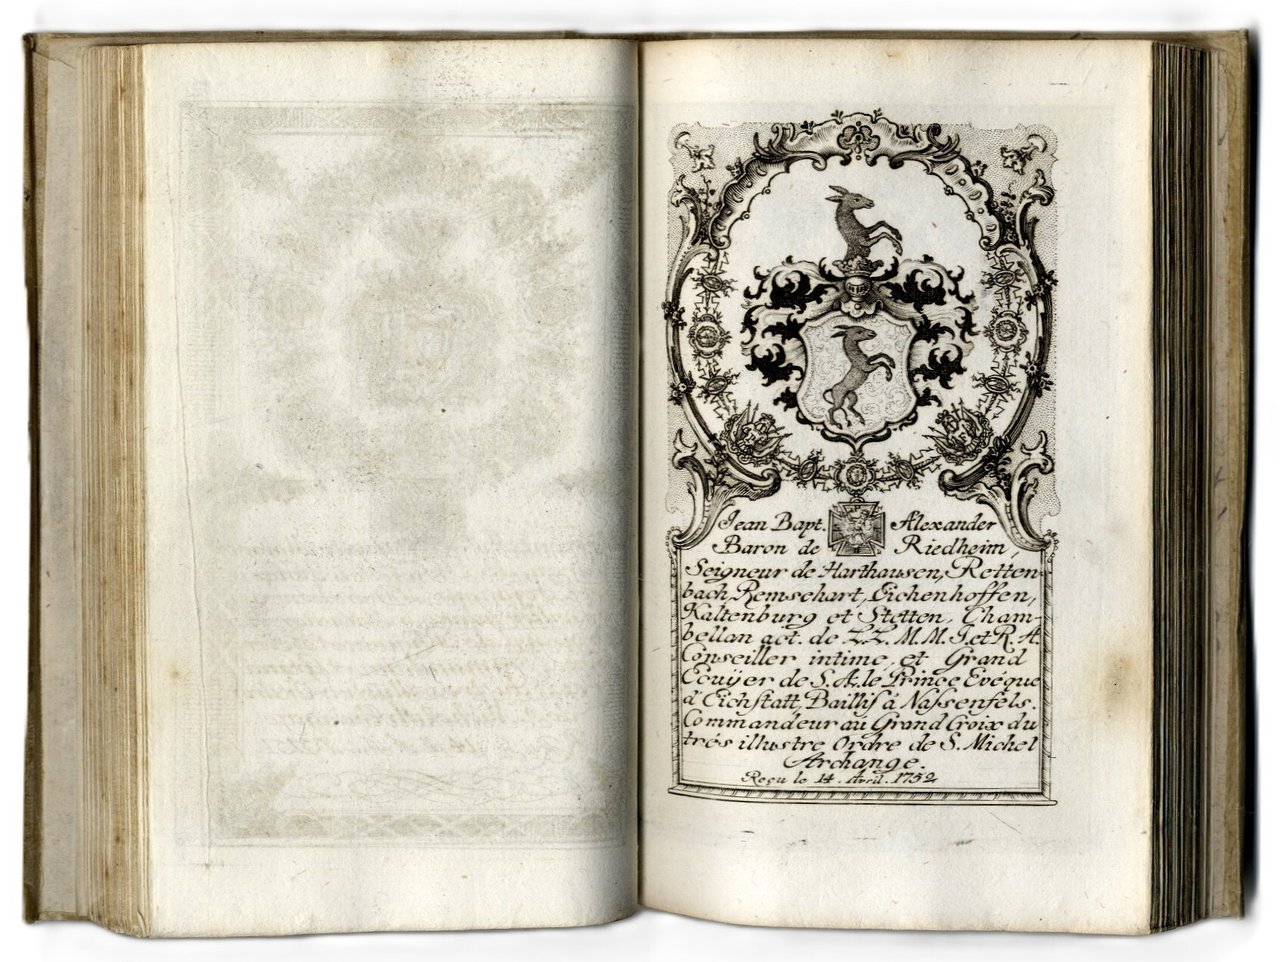 Jean Bapt. Alexander
Baron de Riedheim,
Seigneur de Harthausen, Retten-
bach, Remschart, Eichenhoffen,
Kaltenburg et Stetten, Cham-
bellan act. de LL. M.M. I. et R. A
Conseiller intime, et Grand
Ecuÿer de S. A. le Prince Evéque
d'Eichstatt, Baillif á Nassenfels.
Commandeur au Grand Croix du
trés illustre Ordre de S. Michel
Archange.
Reçu le 14. Avril. 1752